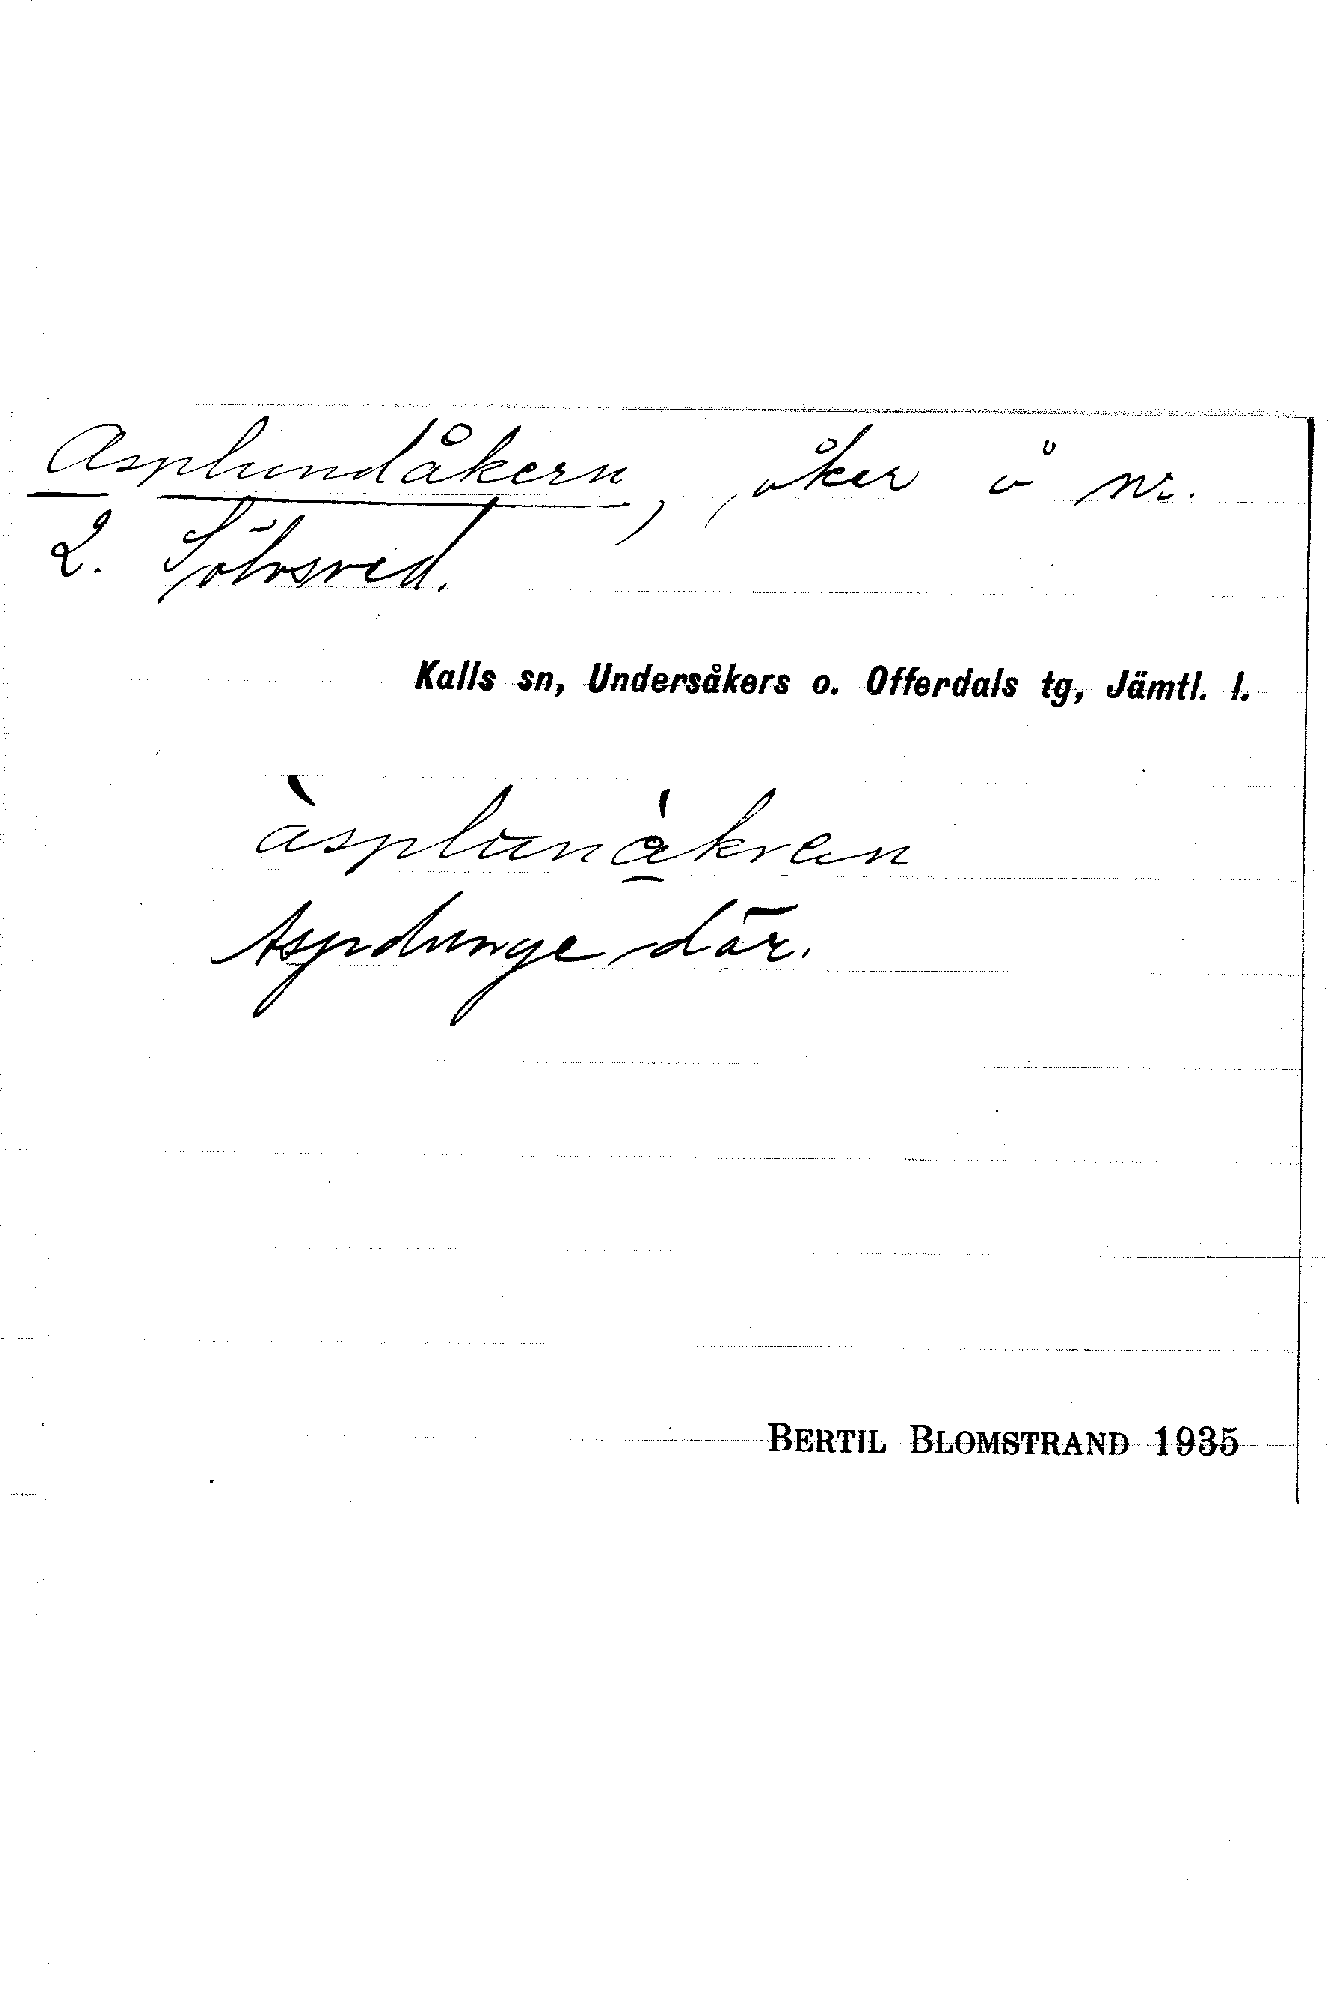 Asplundåkern, åker å nr.
2. Sölvsved.
Kalls sn, Undersåkers o. Offerdals tg, Jämtl. l.
àsplunåkren
Aspdunge där.
BERTIL BLOMSTRAND 1935